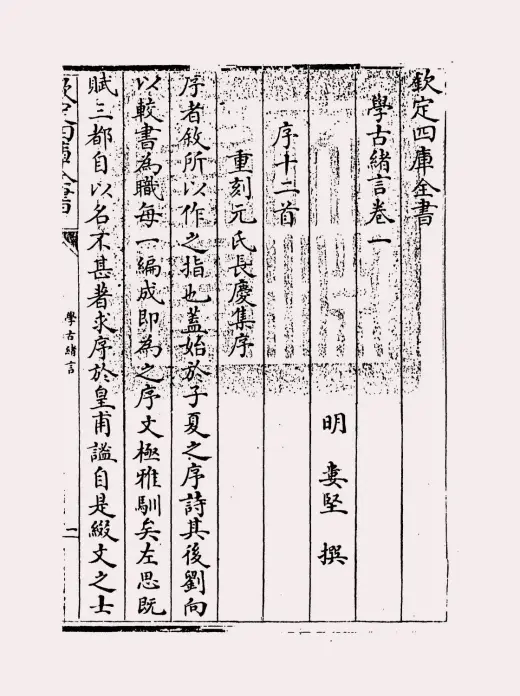 欽定四庫全書
學古緒言卷一
明 婁堅 撰
序十二首
重刻元氏長慶集序
序者敘所以作之指也蓋始於子夏之序詩其後劉向
以較書為職每一編成即為之序文極雅馴矣左思既
賦三都自以名不甚著求序於皇甫謐自是綴文之士
欽定四庫全書
學古緒言
一